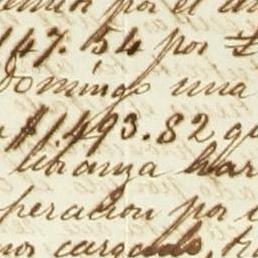 por el
147.54 por
Domingo una
$1493.82 qu
libranza har
peracion por
mos cargado,